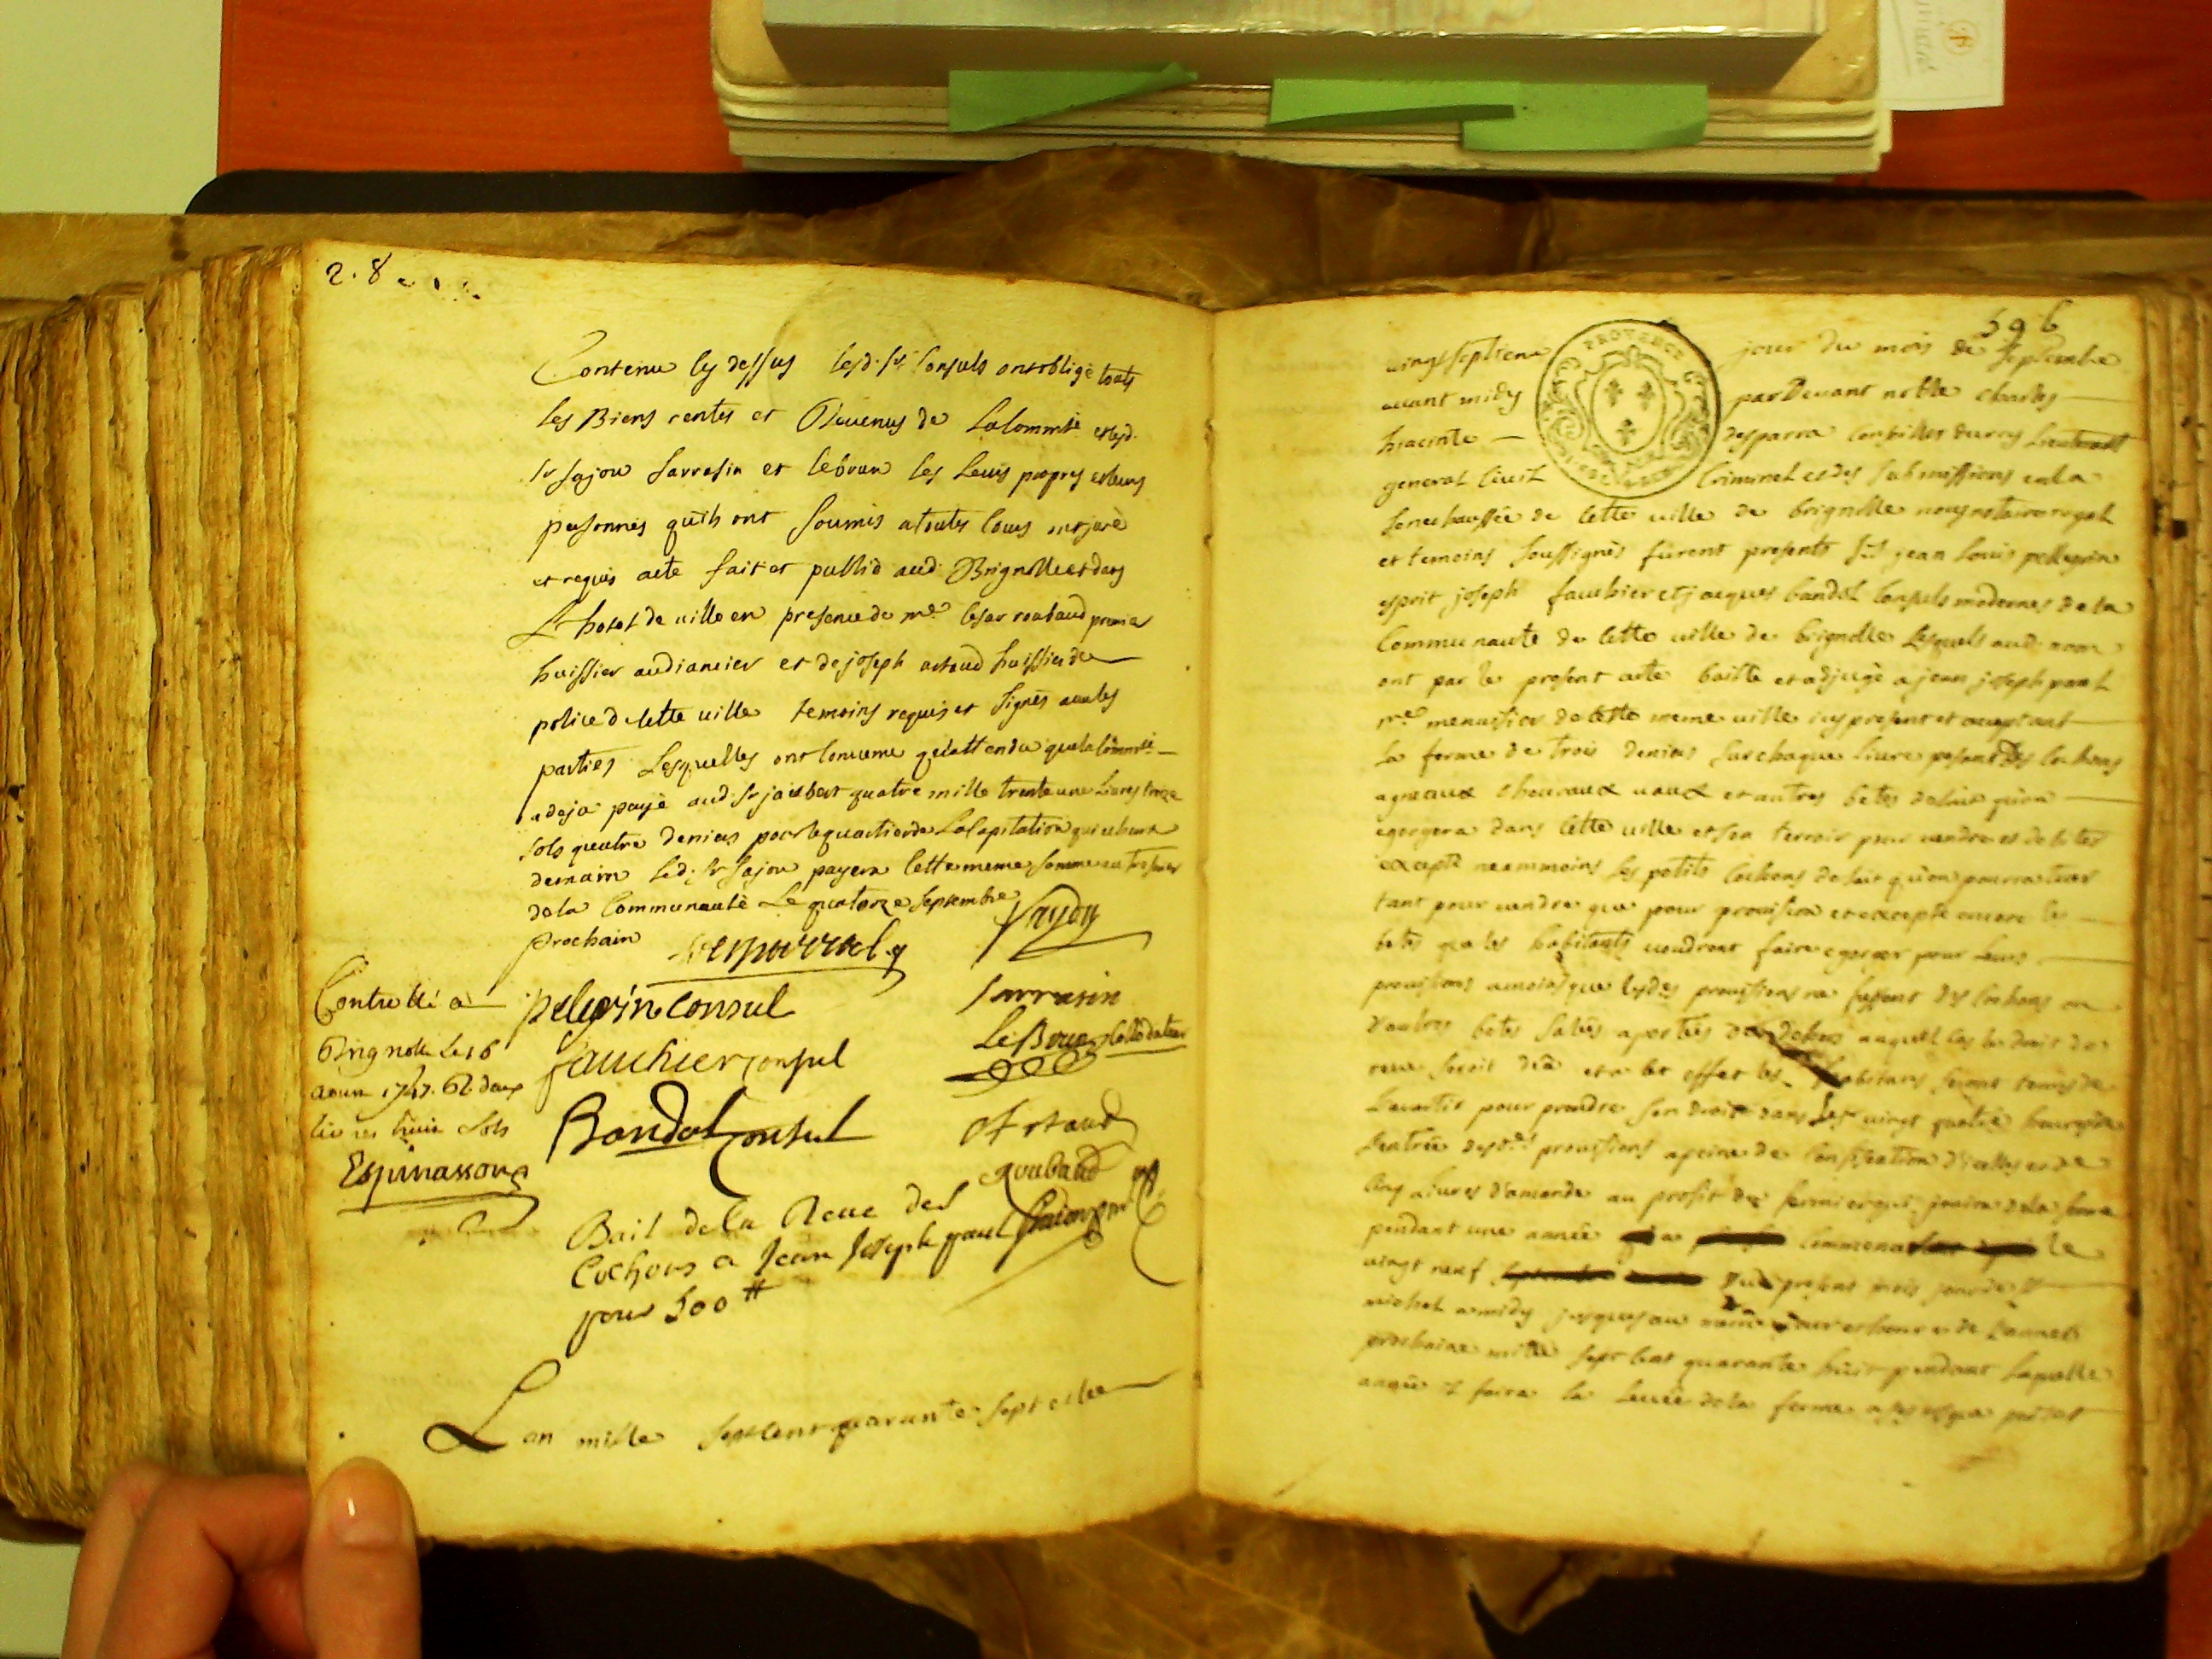 2. 8
Contenu cy dessus lesd. srs Consuls ont obligé touts
les Biens rentes et Revenus de La Commté et lesd.
sr sajou sarrasin et lebrun les Leurs propres et leurs
personnes quils ont soumis a toutes Cours ont juré
et requis acte fait et publié aud. Brignolle et dans
L'hotel de ville en presence de me Cesar roubaud premier
huissier audiancier et de joseph artaud huissier de
police de cette ville temoins requis et signés avec les
parties Lesquelles ont convenu qu'attendu que la Commté
a deja payé aud. sr jaubert quatre mille trente une Livres treize
sols quatre deniers pour le quartier de La Capitation qui echeut
demain led. sr sajou payera cette meme somme au tresorier
de la Communauté Le quatorze septembre
prochain
pelegrin Consul
sarrasin
Controllé a
Brignolle Le 16
aoust 1747. R. deux
livres huit sols
Espinasson
fauchier consul
Le Brun
Bandol Consul
Artaud
Roubaud
Bail de la Reve des
Cochons a Jean Joseph paul
pour 500 ₶
L'an mille sept cent quarante sept et le
596
vingt septieme jour du mois de septembre
avant midy pardevant noble charles
hiacinte desparra Conseiller du roy Lieutenant
general Civil Criminel et des submissions en la
senechaussée de cette ville de brignolle nous notaire royal
et temoins soussignés furent presents srs jean Louis pellegrin
esprit joseph fauchier et jacques bandol Consuls modernes de la
Communauté de cette ville de brignolle Lesquels aud. nom
ont par le present acte baillé et adjugé a jean joseph paul
me menuisier de cette meme ville icy present et acceptant
La ferme de trois deniers sur chaque Livre pesant des Cochons
agneaux chevraux vaux et autres betes de lait qu'on
egorgera dans cette ville et son terroir pour vendre
excepté neammoins les petits Cochons de lait qu'on pourra tuer
tant pour vendre que pour provision et excepté encore les
betes que les habitants voudront faire egorger pour Leurs
provisions a moins que lesdes provisions ne fussent des Cochons ou
d'autres betes salées aportées de dehors auquel cas le droit de
reve seroit deü et a cet effet les habitans seront tenus de
L'avertir pour prendre son droit dans Les vingt quatre heures de
L'entrée desdes provisions a peine de Confiscation d'icelles et de
Cinq Livres d'amende au profit du fermier qui jouira de la ferme
pendant une année le
vingt neuf du present mois jour de st
michel a midy jusques au meme jour et heure de L'année
prochaine mille sept cent quarante huit pendant Laquelle
année il faira la Levée de la ferme
PROVENCE